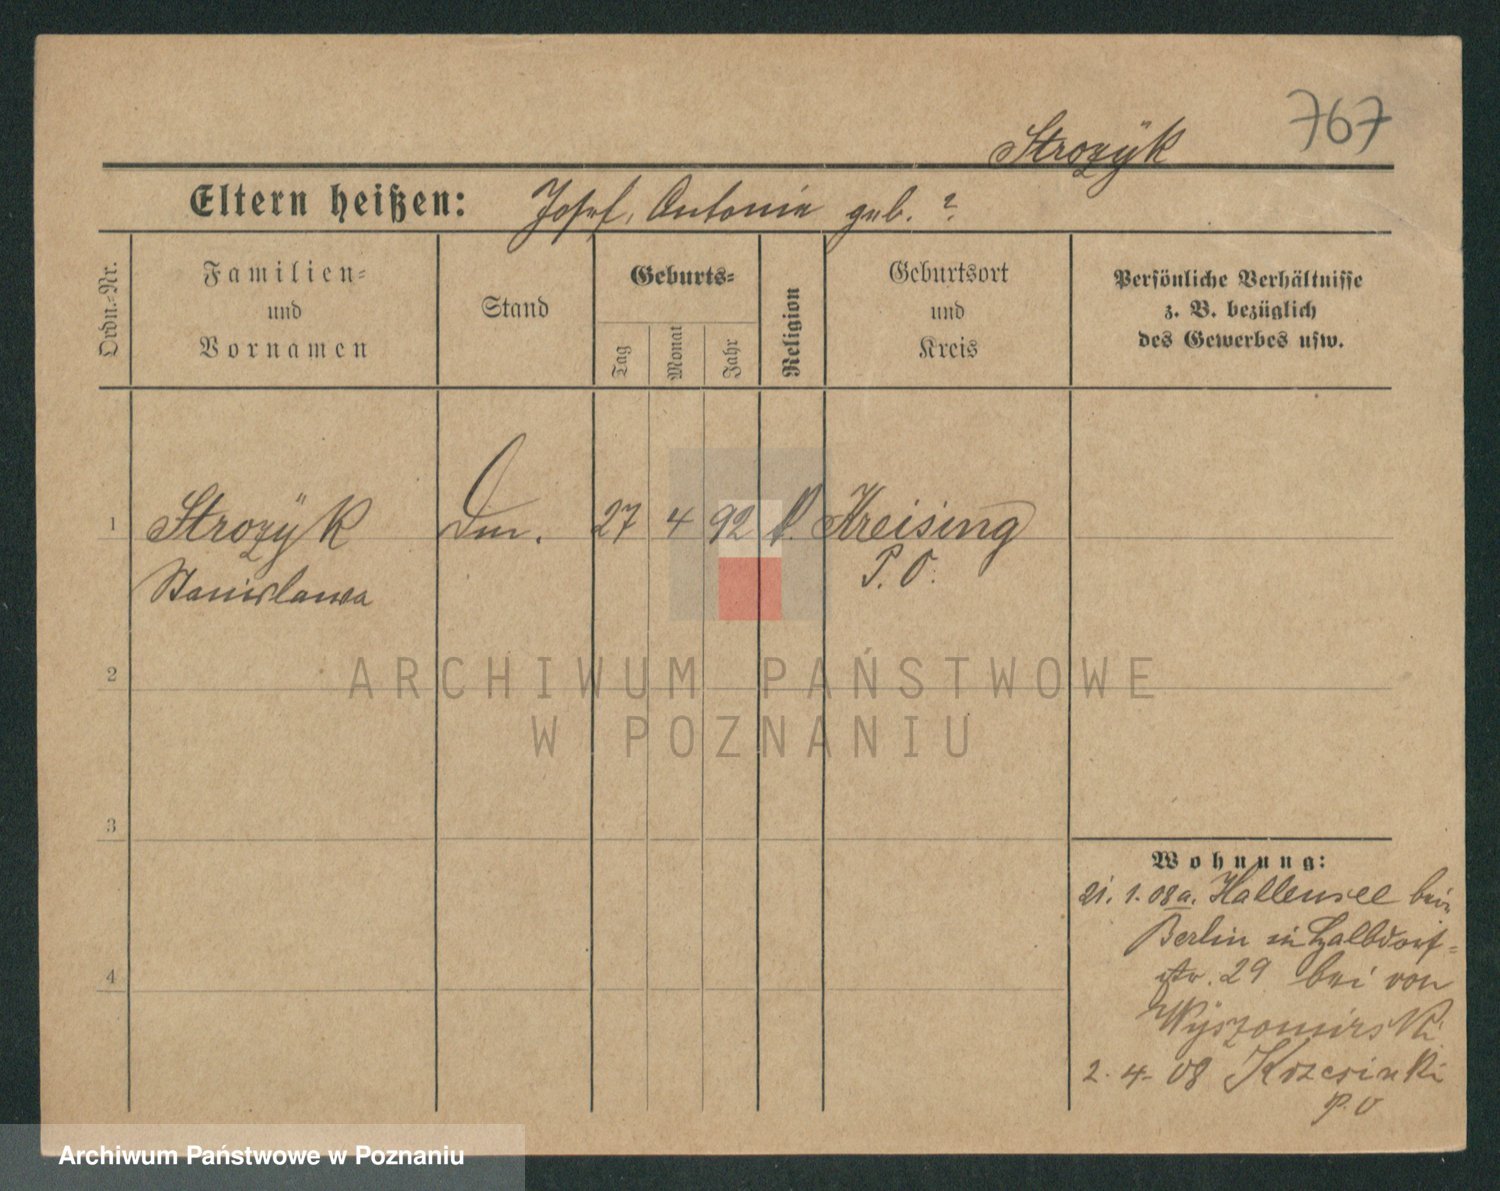 767
Strozÿk
Eltern heißen: Josef, Antonie geb. ?
Ordn.-Nr.
Familien-
und
Vornamen
Stand
Geburts-
Tag
Monat
Jahr
Religion
Geburtsort
und
Kreis
Persönliche Verhältnisse
z. B. bezüglich
des Gewerbes usw.
1 Strozÿk 27 4 92 Kreising
Stanislawa P. O.
2
3
4
Wohnung:
21. 1. 08 a. Hallensee bei
Berlin in
str. 29 bei von
Wÿszomirski
2. 4. 08 Krzesinki
P. O
ARCHIWUM PAŃSTWOWE
W POZNANIU
Archiwum Państwowe w Poznaniu